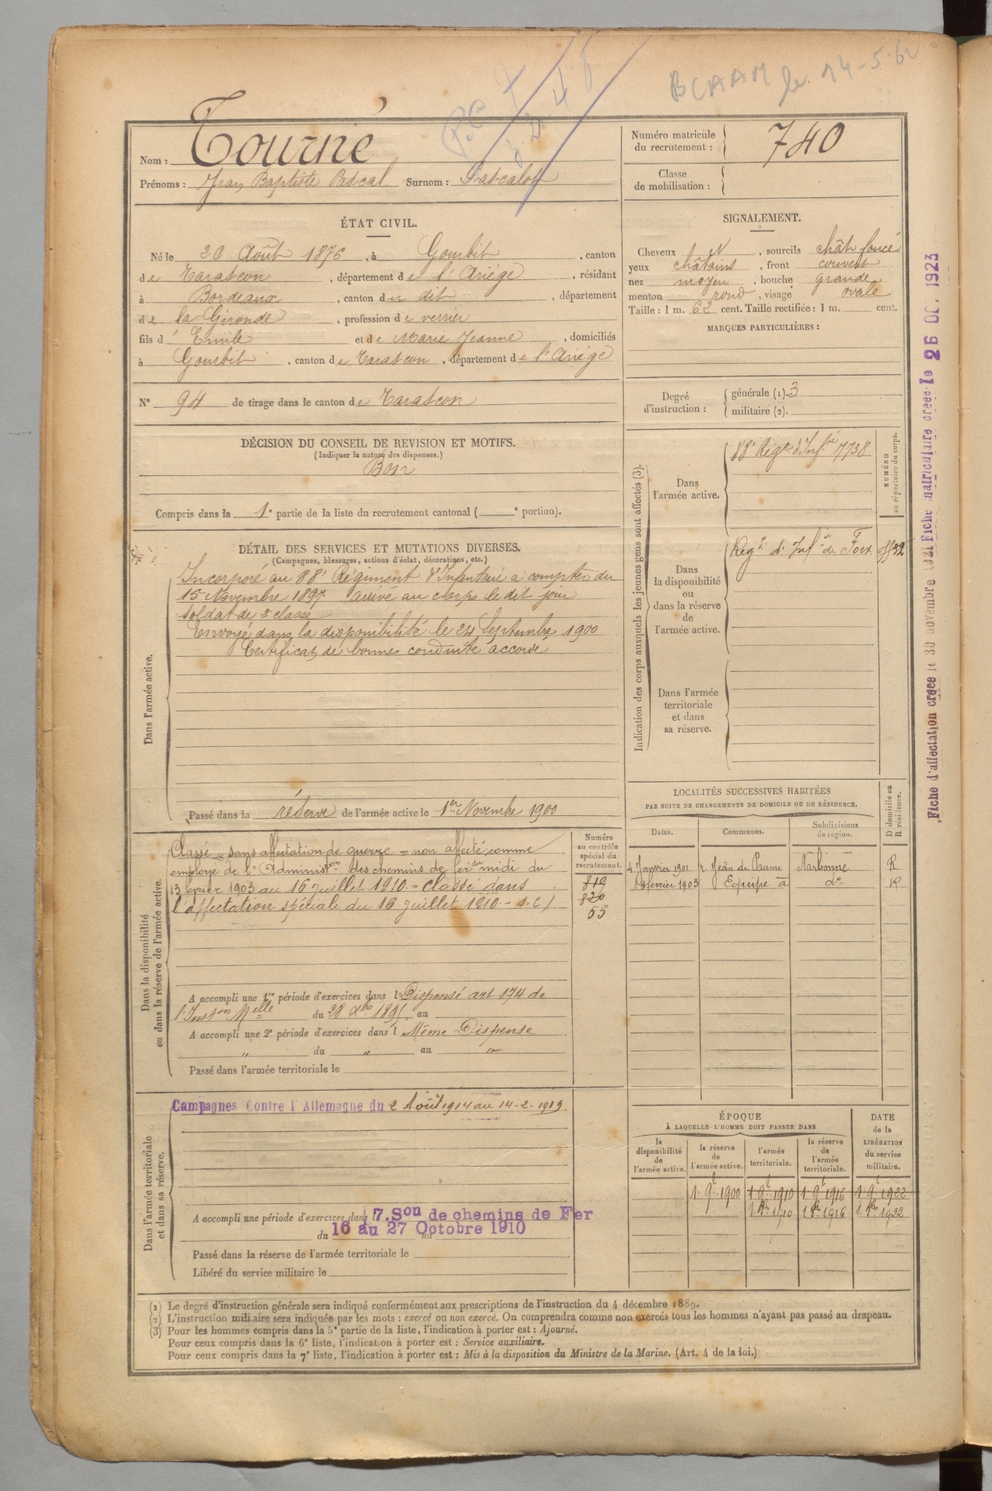 BCAAM le 14-5-62
Nom : Tourné
Prénoms : Jean Baptiste Pascal Surnom : Pascalou
Numéro matricule du recrutement : 740
Classe de mobilisation :
ÉTAT CIVIL.
Né le 20 Août 1876, à Gourbit, canton
de Tarascon, département de l'Ariège, résidant
à Bordeaux, canton du dit, département
de la Gironde, profession de verrier
fils d' Emile et de Marie Jeanne, domiciliés
à Gourbit, canton de Tarascon, département de l'Ariège
N° 94 de tirage dans le canton de Tarascon
SIGNALEMENT.
Cheveux et, sourcils chât foncé
yeux châtains, front couvert
nez moyen, bouche grande
menton rond, visage ovale
Taille : 1 m. 62 cent. Taille rectifiée : 1 m. cent.
MARQUES PARTICULIÈRES :
Degré d'instruction : générale (1). 3
militaire (2).
DÉCISION DU CONSEIL DE REVISION ET MOTIFS.
(Indiquer la nature des dispenses.)
Bon
Compris dans la 1e partie de la liste du recrutement cantonal ( e portion).
DÉTAIL DES SERVICES ET MUTATIONS DIVERSES.
(Campagnes, blessures, actions d'éclat, décorations, etc.)
Dans l'armée active.
Incorporé au 88e Régiment d'Infanterie à compter du
15 Novembre 1897 arrivé au corps le dit jour
soldat de 2e classe
Envoyé dans la disponibilité le 24 Septembre 1900
Certificat de bonne conduite accordé
Passé dans la réserve de l'armée active le 1er Novembre 1900
Indication des corps auxquels les jeunes gens sont affectés (3).
NUMÉRO au répertoire du corps.
Dans l'armée active.
88e Régt d'Infie 7738
Dans la disponibilité ou dans la réserve de l'armée active.
Regt d'Infie de Foix
Dans l'armée territoriale et dans sa réserve.
Dans la disponibilité ou dans la réserve de l'armée active.
Classé "sans affectation de guerre" non affecté comme
employé de l'Administon des chemins de fer du midi du
13 février 1903 au 16 juillet 1910 - Classé dans
l'affectation spéciale du 16 juillet 1910 - s.c)
Numéro au contrôle spécial du recrutement.
819
820
55
A accompli une 1re période d'exercices dans l Dispensé art 174 de
l'Inston Melle du 28 Xbre 1895 au
A accompli une 2e période d'exercices dans l Même Dispense
" du " au "
Passé dans l'armée territoriale le
LOCALITÉS SUCCESSIVES HABITÉES
PAR SUITE DE CHANGEMENTS DE DOMICILE OU DE RÉSIDENCE.
Dates. Communes. Subdivisions de région. D domicile ou R résidence.
4 Janvier 1901 St Jean de Narbonne R
février 1903 Equipe à do R
Dans l'armée territoriale et dans sa réserve.
Campagnes Contre l'Allemagne du 2 Août 1914 au 14-2-1919.
A accompli une période d'exercices dans 7.Son de chemins de Fer
du 16 au 27 Octobre 1910
Passé dans la réserve de l'armée territoriale le
Libéré du service militaire le
ÉPOQUE
À LAQUELLE L'HOMME DOIT PASSER DANS
DATE de la LIBÉRATION du service militaire.
la disponibilité de l'armée active. la réserve de l'armée active. l'armée territoriale. la réserve de l'armée territoriale.
1 9t 1900 1 9t 1910 1 9t 1916 1 9t 1922
1 8re 1910 1 8re 1916 1 8re 1922
(1) Le degré d'instruction générale sera indiqué conformément aux prescriptions de l'instruction du 4 décembre 1889.
(2) L'instruction militaire sera indiquée par les mots : exercé ou non exercé. On comprendra comme non exercés tous les hommes n'ayant pas passé au drapeau.
(3) Pour les hommes compris dans la 5e partie de la liste, l'indication à porter est : Ajourné.
Pour ceux compris dans la 6e liste, l'indication à porter est : Service auxiliaire.
Pour ceux compris dans la 7e liste, l'indication à porter est : Mis à la disposition du Ministre de la Marine. (Art. 4 de la loi.)
Fiche d'affectation créée le 30 novembre 1921 Fiche matriculaire créée le 26 OC. 1923